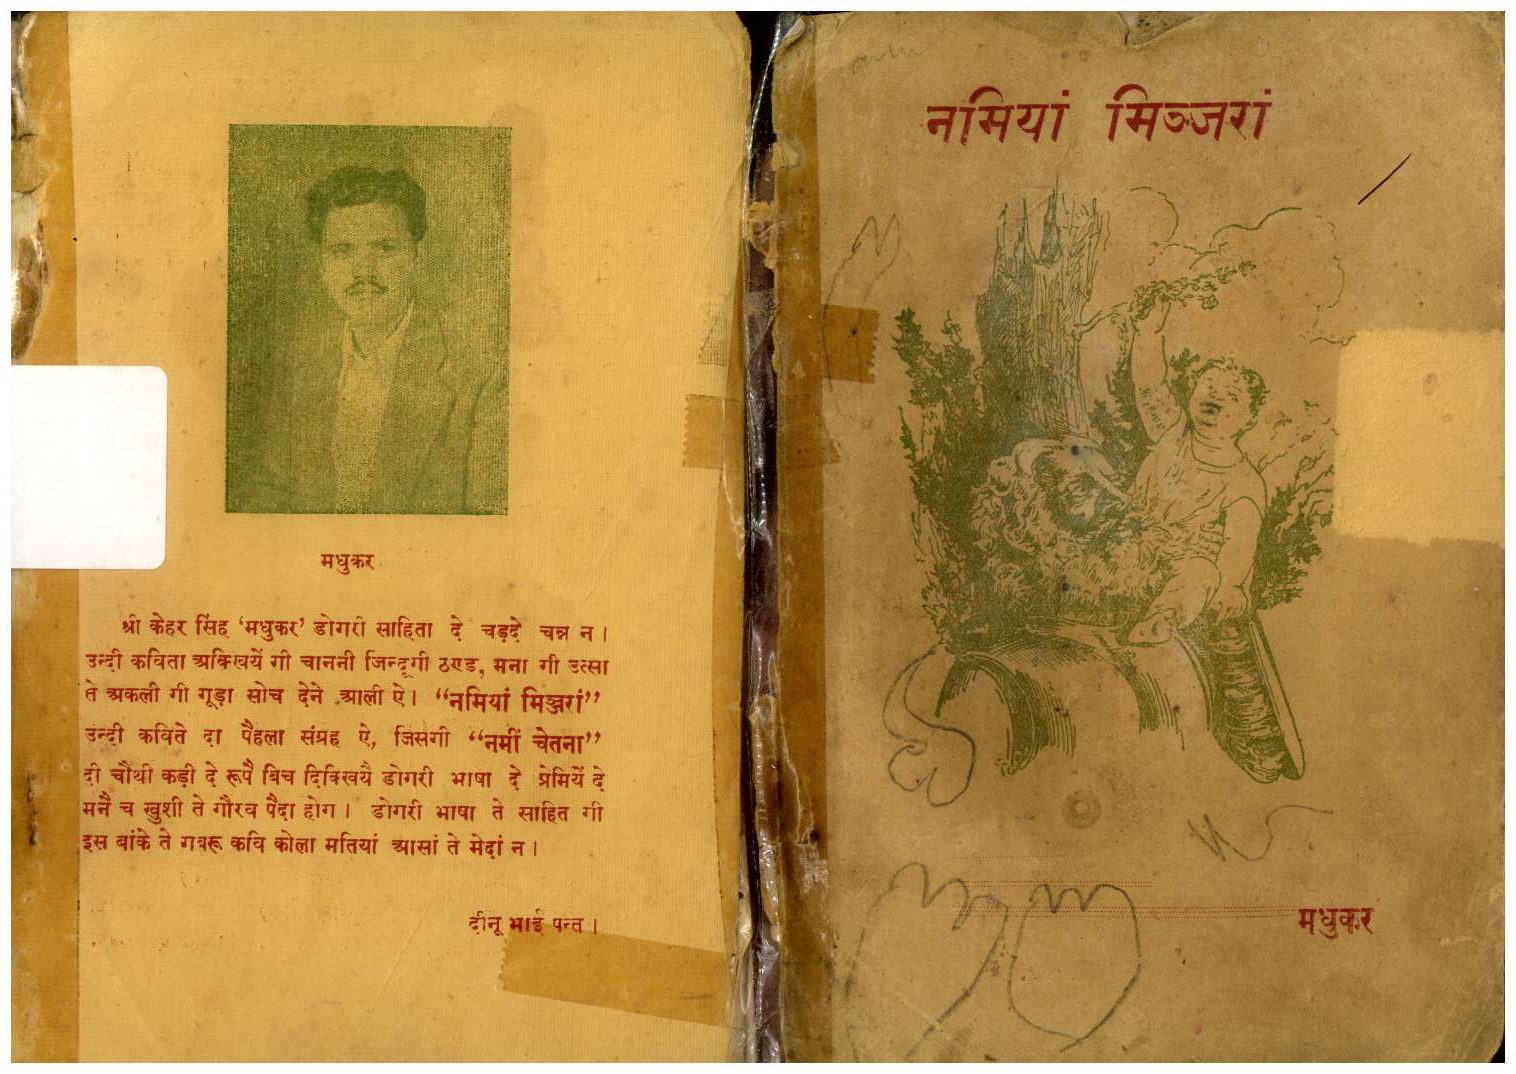 मधुकर
श्री केहर सिंह ‘मधुकर’ डोगरी साहिता दे चड़दे चन्न न।
उन्दी कविता अक्खियें गी चाननी जिन्दूगी ठण्ड, मना गी उत्सा
ते अकली गी गूड़ा सोच देने आली ऐ। “नमियां मिञ्जरां”
उन्दी कविते दा पैहला संग्रह ऐ, जिसगी “नमीं चेतना”
दी चौथी कड़ी दे रूपै बिच दिक्खियै डोगरी भाषा दे प्रेमियें दे
मनै च खुशी ते गौरव पैदा होग। डोगरी भाषा ते साहित गी
इस बांके ते गबरू कवि कोला मतियां आसां ते मेदां न।
दीनू भाई पन्त।
नमियां मिञ्जरां
मधुकर